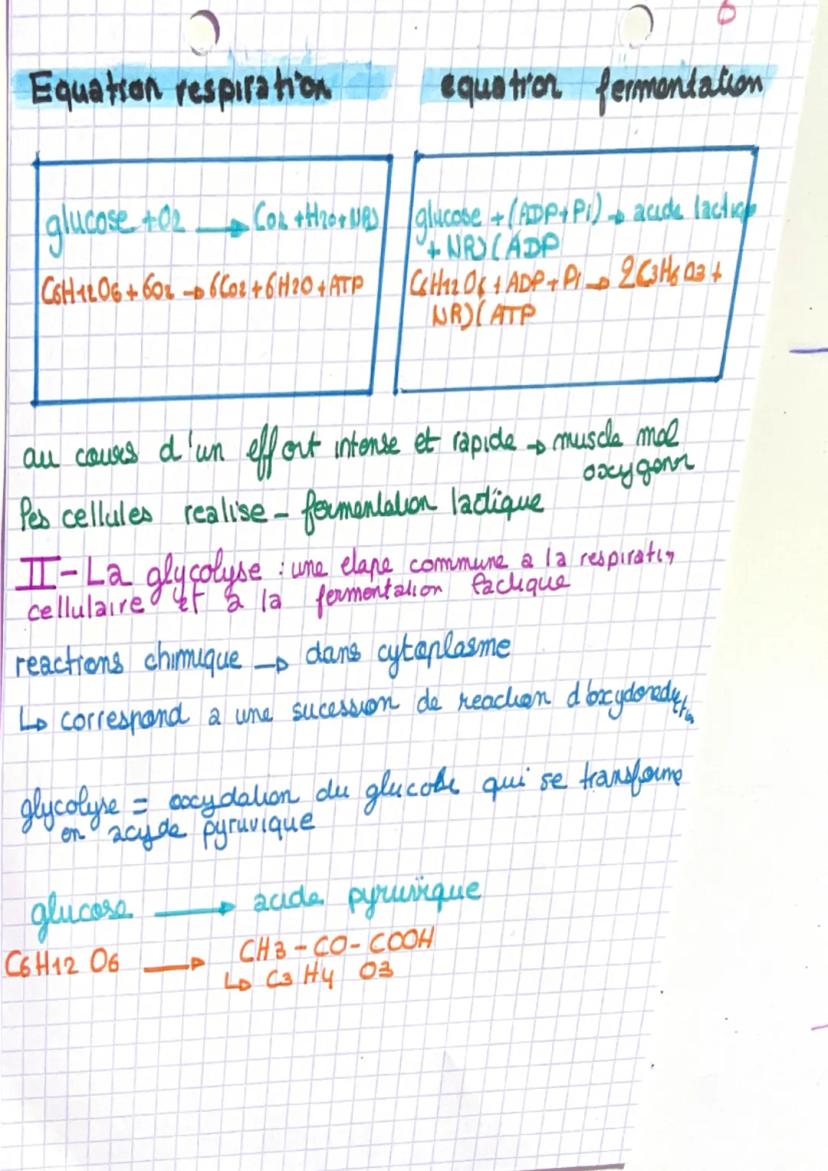 Equation respiration
glucose + O2 → CO2 + H2O + NRJ
C6H12O6 + 6O2 → 6CO2 + 6H2O + ATP
equation fermentation
glucose + (ADP + Pi) → acide lactique
+ NRJ (ADP
C6H12O6 + ADP + Pi → 2C3H6O3 +
NRJ ( ATP
au cours d'un effort intense et rapide → muscle mal
oxygener
les cellules realise - fermentation lactique
II - La glycolyse : une etape commune a la respiration
cellulaire et à la fermentation lactique
reactions chimique → dans cytoplasme
↳ correspond a une sucession de reaction d'oxydoreduction
glycolyse = oxydation du glucose qui se transforme
en acyde pyruvique
glucose → acide pyruvique
C6H12O6 → CH3 - CO - COOH
↳ C3 H4 O3